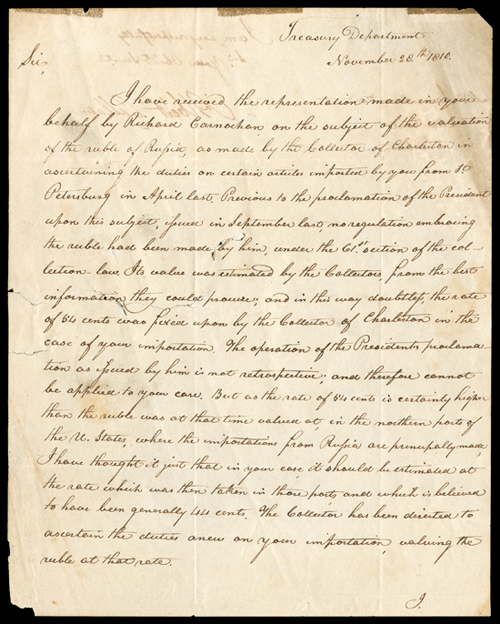 Treasury Department
November 28.th 1810.
Sir,
I have received the representation made in your
behalf by Richard Carnochan on the subject of the valuation
of the ruble of Russia, as made by the Collector of Charleston in
ascertaining the duties on certain articles imported by you from St.
Petersburg in April last. Previous to the proclamation of the President
upon this subject, issued in September last, no regulation embracing
the ruble had been made by him, under the 61.st section of the col-
lection-law. Its value was estimated by the Collectors, from the best
information they could procure; and in this way doubtless, the rate
of 54 cents was fixed upon by the Collector of Charleston in the
case of your importation. The operation of the Presidents proclama
tion as issued by him is not retrospective; and therefore cannot
be applied to your case. But as the rate of 54 cents is certainly higher
than the ruble was at that time valued at in the northern ports of
the U. States, where the importations from Russia are principally made,
I have thought it just that in your case, it should be estimated at
the rate which was then taken in those ports and which is believed
to have been generally 44 cents. The Collector has been directed to
ascertain the duties anew on your importation, valuing the
ruble at that rate.
J.